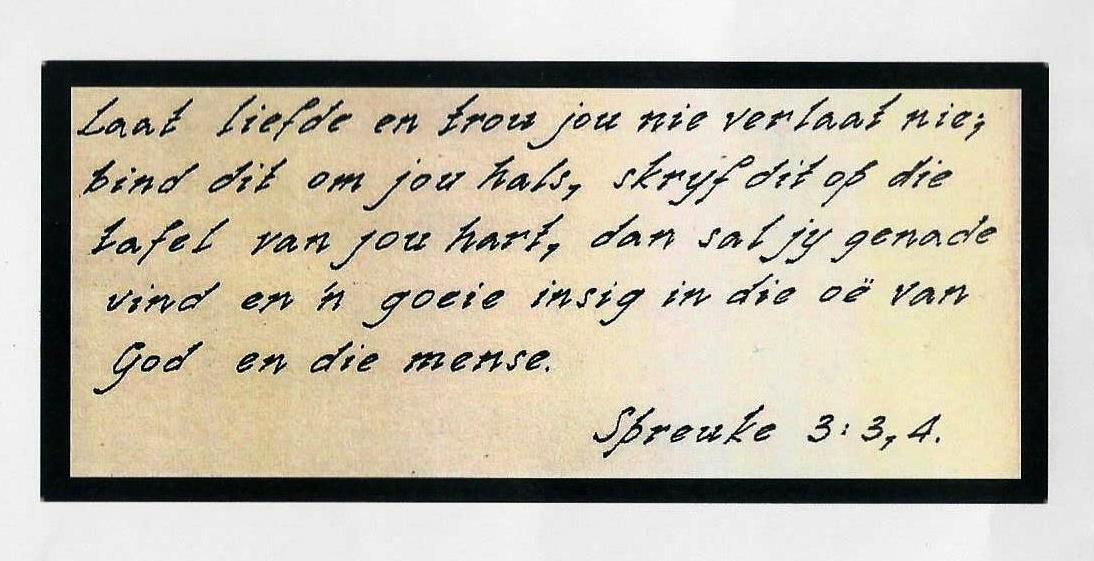 Laat liefde en trou jou nie verlaat nie;
bind dit om jou hals, skryf dit op die
tafel van jou hart, dan sal jy genade
vind en 'n goeie insig in die oë van
God en die mense.
Spreuke 3:3,4.